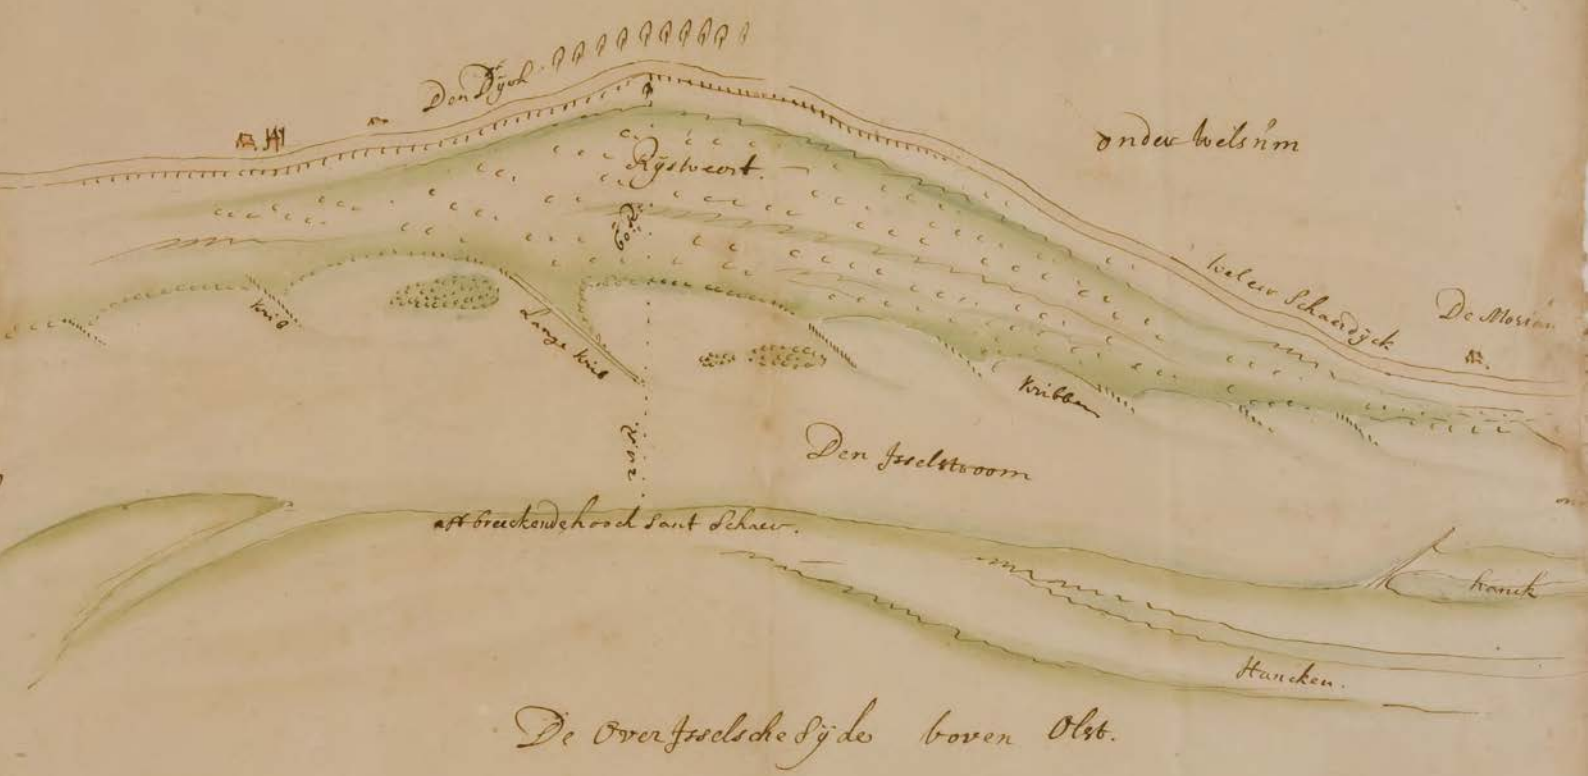 Den Dijck
onder Welsum
Rijsweert.
Welser Schaerdijck
De Moriaen
Krib
Lange Krib
Kribben
Den Isselstroom
aff breeckende hooch sant Schaer.
hanck
Hancken.
De Over Isselsche Sijde boven Olst.